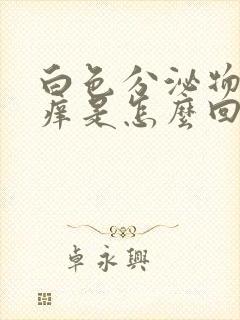 白色分泌物
痒是怎麼回
卓永興